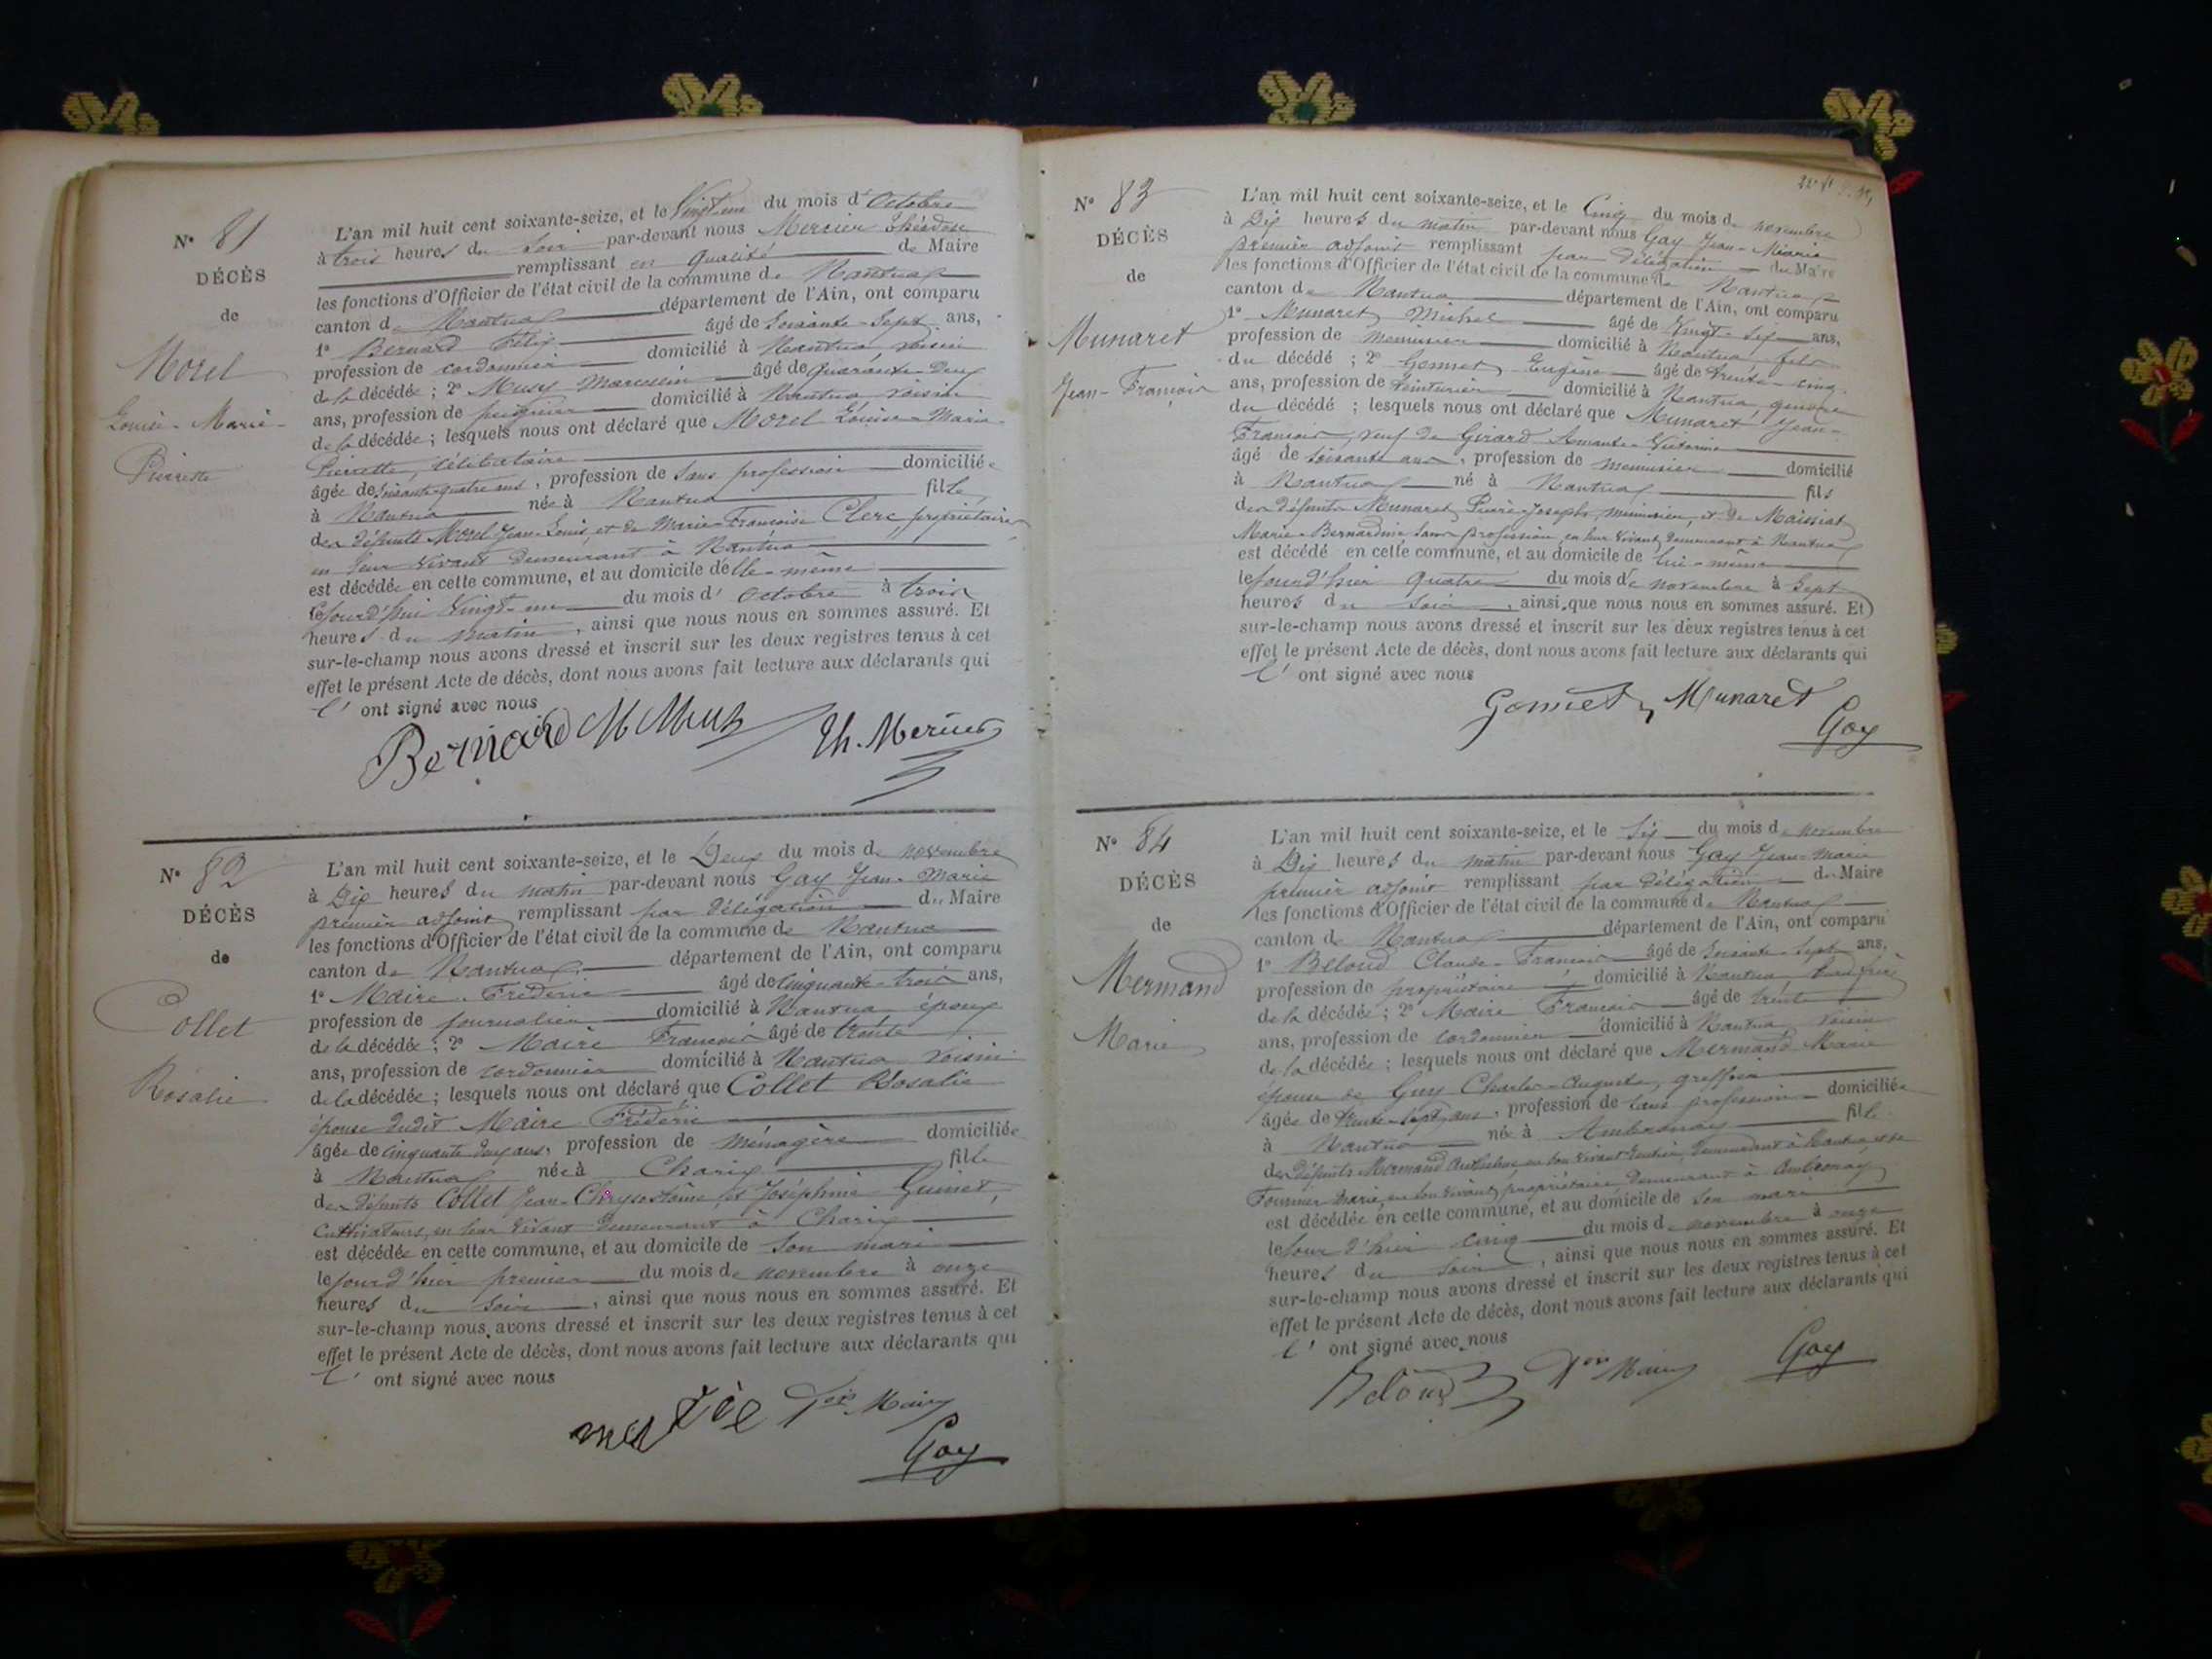 N° 81
DÉCÈS
de
Morel
Louise-Marie-
Pierrette
L'an mil huit cent soixante-seize, et le Vingt-un du mois d'Octobre
à trois heures du soir par-devant nous Mercier Théodose
remplissant en qualité de Maire
les fonctions d'Officier de l'état civil de la commune de Nantua
canton de Nantua département de l'Ain, ont comparu
1° Bernard Félix âgé de soixante-sept ans,
profession de cordonnier domicilié à Nantua voisin
de la décédée ; 2° Musy Marcellin âgé de quarante-deux
ans, profession de peignier domicilié à Nantua voisin
de la décédée ; lesquels nous ont déclaré que Morel Louise-Marie-
Pierrette, célibataire
âgée de soixante-quatre ans, profession de sans profession domiciliée
à Nantua née à Nantua fille
des défunts Morel Jean-Louis et de Marie-Françoise Clerc propriétaires
en leur vivant demeurant à Nantua
est décédée en cette commune, et au domicile d'elle-même
le jourd'hui vingt-un du mois d'Octobre à trois
heures du matin, ainsi que nous nous en sommes assuré. Et
sur-le-champ nous avons dressé et inscrit sur les deux registres tenus à cet
effet le présent Acte de décès, dont nous avons fait lecture aux déclarants qui
l' ont signé avec nous
Bernard M Musy Th. Mercier
N° 82
DÉCÈS
de
Collet
Rosalie
L'an mil huit cent soixante-seize, et le Deux du mois de novembre
à Dix heures du matin par-devant nous Gay Jean-Marie
premier adjoint remplissant par délégation du Maire
les fonctions d'Officier de l'état civil de la commune de Nantua
canton de Nantua département de l'Ain, ont comparu
1° Maire Frédéric âgé de cinquante-trois ans,
profession de journalier domicilié à Nantua époux
de la décédée ; 2° Maire François âgé de trente
ans, profession de cordonnier domicilié à Nantua voisin
de la décédée ; lesquels nous ont déclaré que Collet Rosalie
épouse dudit Maire Frédéric
âgée de cinquante deux ans, profession de ménagère domiciliée
à Nantua née à Charix fille
des défunts Collet Jean-Chrysostôme et Joséphine Guinet,
cultivateurs, en leur vivant demeurant à Charix
est décédée en cette commune, et au domicile de son mari
le jourd'hier premier du mois de novembre à onze
heures du soir, ainsi que nous nous en sommes assuré. Et
sur-le-champ nous avons dressé et inscrit sur les deux registres tenus à cet
effet le présent Acte de décès, dont nous avons fait lecture aux déclarants qui
l' ont signé avec nous
Maire
Gay
N° 83
DÉCÈS
de
Munaret
Jean-François
L'an mil huit cent soixante-seize, et le Cinq du mois de novembre
à Dix heures du matin par-devant nous Gay Jean-Marie
premier adjoint remplissant par délégation du Maire
les fonctions d'Officier de l'état civil de la commune de Nantua
canton de Nantua département de l'Ain, ont comparu
1° Munaret Michel âgé de vingt-six ans,
profession de menuisier domicilié à Nantua fils
du décédé ; 2° Gonnet Eugène âgé de trente-cinq
ans, profession de teinturier domicilié à Nantua, gendre
du décédé ; lesquels nous ont déclaré que Munaret Jean-
François, veuf de Girard Amante-Victorine
âgé de soixante ans, profession de menuisier domicilié
à Nantua né à Nantua fils
des défunts Munaret Pierre-Joseph, menuisier, et de Maissiat
Marie-Bernardine sans profession en leur vivant demeurant à Nantua
est décédé en cette commune, et au domicile de lui-même
le jourd'hier quatre du mois de novembre à sept
heures du soir, ainsi que nous nous en sommes assuré. Et
sur-le-champ nous avons dressé et inscrit sur les deux registres tenus à cet
effet le présent Acte de décès, dont nous avons fait lecture aux déclarants qui
l' ont signé avec nous
Gonnet Munaret
Gay
N° 84
DÉCÈS
de
Mermand
Marie
L'an mil huit cent soixante-seize, et le Six du mois de novembre
à Dix heures du matin par-devant nous Gay Jean-Marie
premier adjoint remplissant par délégation du Maire
les fonctions d'Officier de l'état civil de la commune de Nantua
canton de Nantua département de l'Ain, ont comparu
1° Beloud Claude-François âgé de soixante-sept ans,
profession de propriétaire domicilié à Nantua beau frère
de la décédée ; 2° Maire François âgé de trente
ans, profession de cordonnier domicilié à Nantua, voisin
de la décédée ; lesquels nous ont déclaré que Mermand Marie
épouse de Guy Charles-Auguste, greffier
âgée de trente-sept ans, profession de sans profession domiciliée
à Nantua née à Ambronay fille
des défunts Mermand Anthelme, en son vivant rentier, demeurant à Nantua et de
Fournier Marie, en son vivant, propriétaire demeurant à Ambronay
est décédée en cette commune, et au domicile de son mari
le jour d'hier cinq du mois de novembre à onze
heures du soir, ainsi que nous nous en sommes assuré. Et
sur-le-champ nous avons dressé et inscrit sur les deux registres tenus à cet
effet le présent Acte de décès, dont nous avons fait lecture aux déclarants qui
l' ont signé avec nous
Beloud Maire Gay